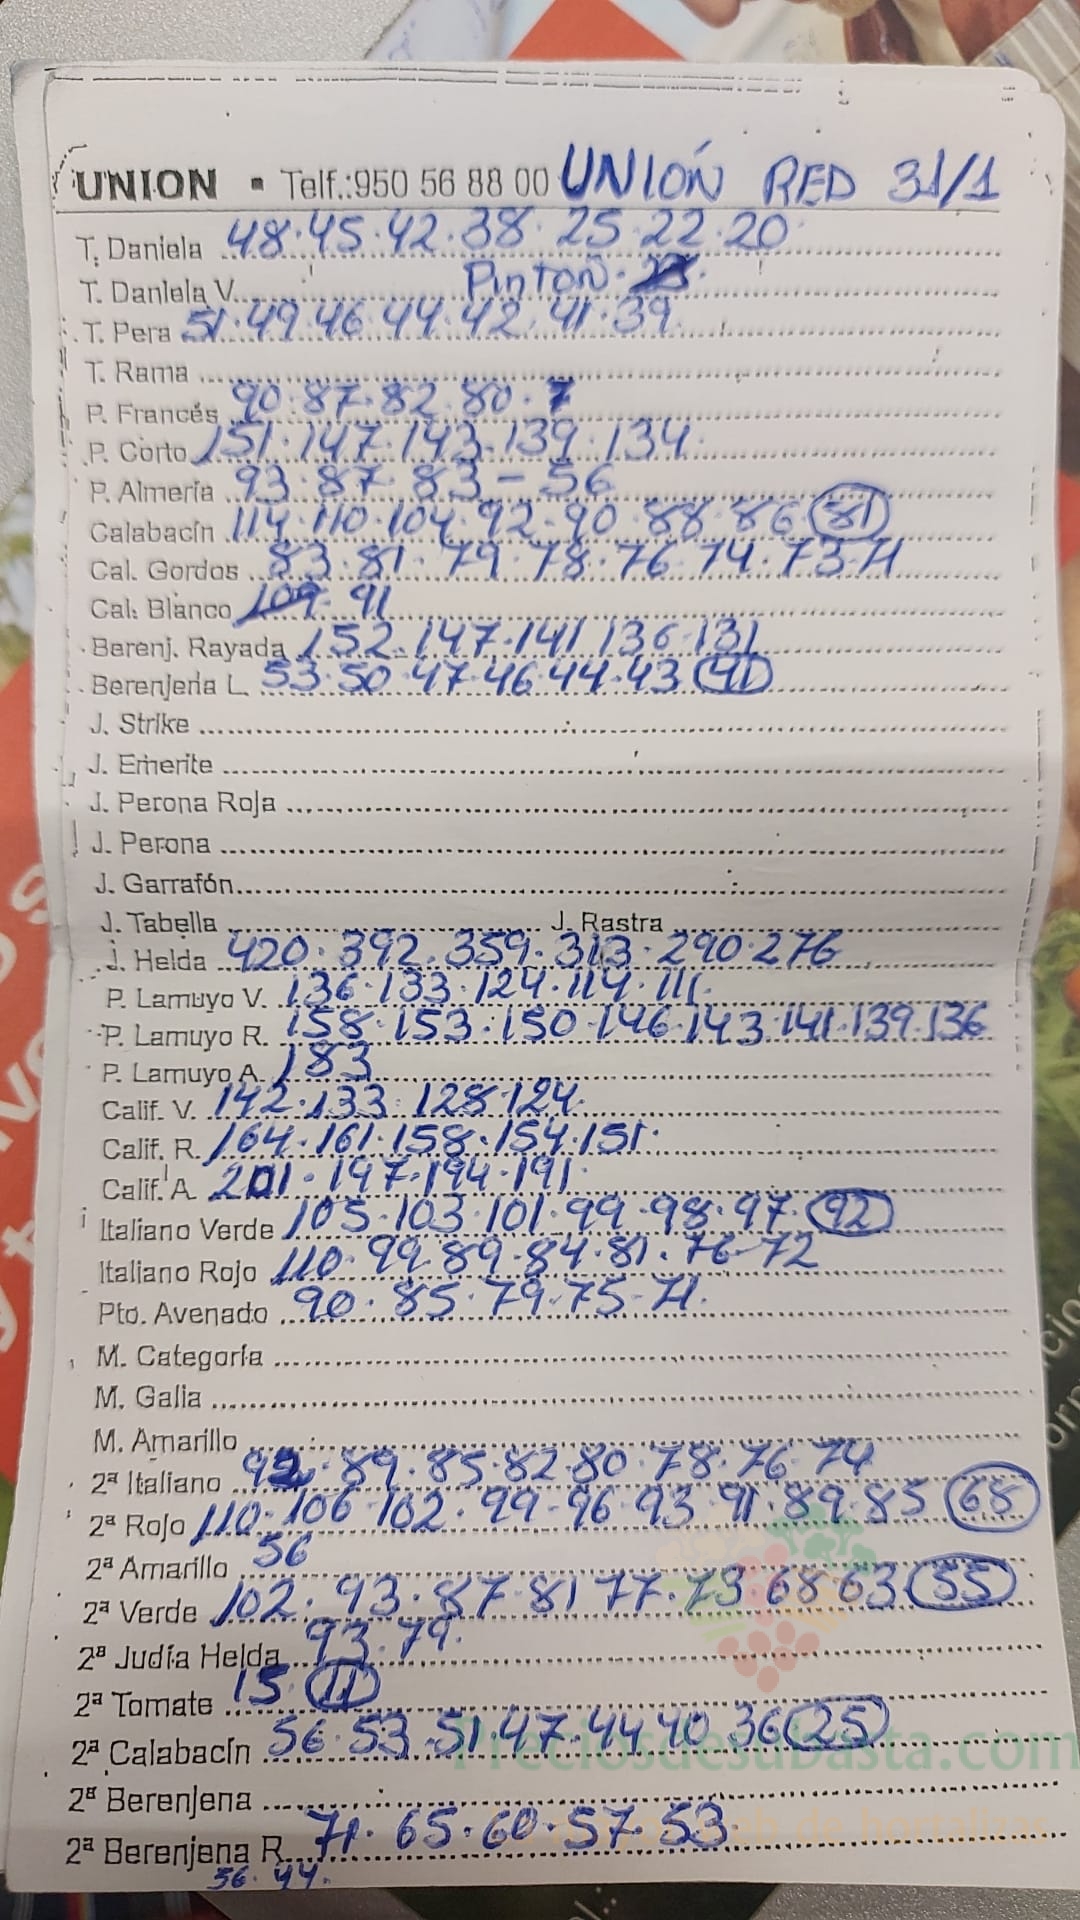 UNION ▪ Telf.:950 56 88 00 UNIÓN RED 31/1
T. Daniela 48·45·42·38·25·22·20
T. Daniela V. PINTON·
T. Pera 51·49·46·44·42·41·39
T. Rama
P. Francés 90·87·82·80·
P. Corto 151·147·143·139·134
P. Almería 93·87·83-56
Calabacín 114·110·104·92·90·88·86 81
Cal. Gordos 83·81·79·78·76·74·73·71
Cal. Blanco 109·91
Berenj. Rayada 152·147·141 136·131
Berenjena L. 53·50·47·46·44·43 41
J. Strike
J. Emerite
J. Perona Roja
J. Perona
J. Garrafón
J. Tabella J. Rastra
J. Helda 420·392·359·313·290·276
P. Lamuyo V. 136·133·124·114·111
P. Lamuyo R. 158·153·150·146·143·141·139·136
P. Lamuyo A. 183
Calif. V. 142·133·128·124
Calif. R. 164·161·158·154·151
Calif. A 201·197·194·191
Italiano Verde 105·103·101·99·98·97·92
Italiano Rojo 110·99·89·84·81·76·72
Pto. Avenado 90·85·79·75·71
M. Categoría
M. Galia
M. Amarillo
2ª Italiano 92·89·85·82·80·78·76·74
2ª Rojo 110·106·102·99·96·93·91·89·85 68
2ª Amarillo 56
2ª Verde 102·93·87·81 77·73·68 63 55
2ª Judía Helda 93·79
2ª Tomate 15 11
2ª Calabacín 56·53·51·47·44 40 36 25
Preciosdesubasta.com
2ª Berenjena
2ª Berenjena R. 71·65·60·57·53
web de hortalizas
56·44